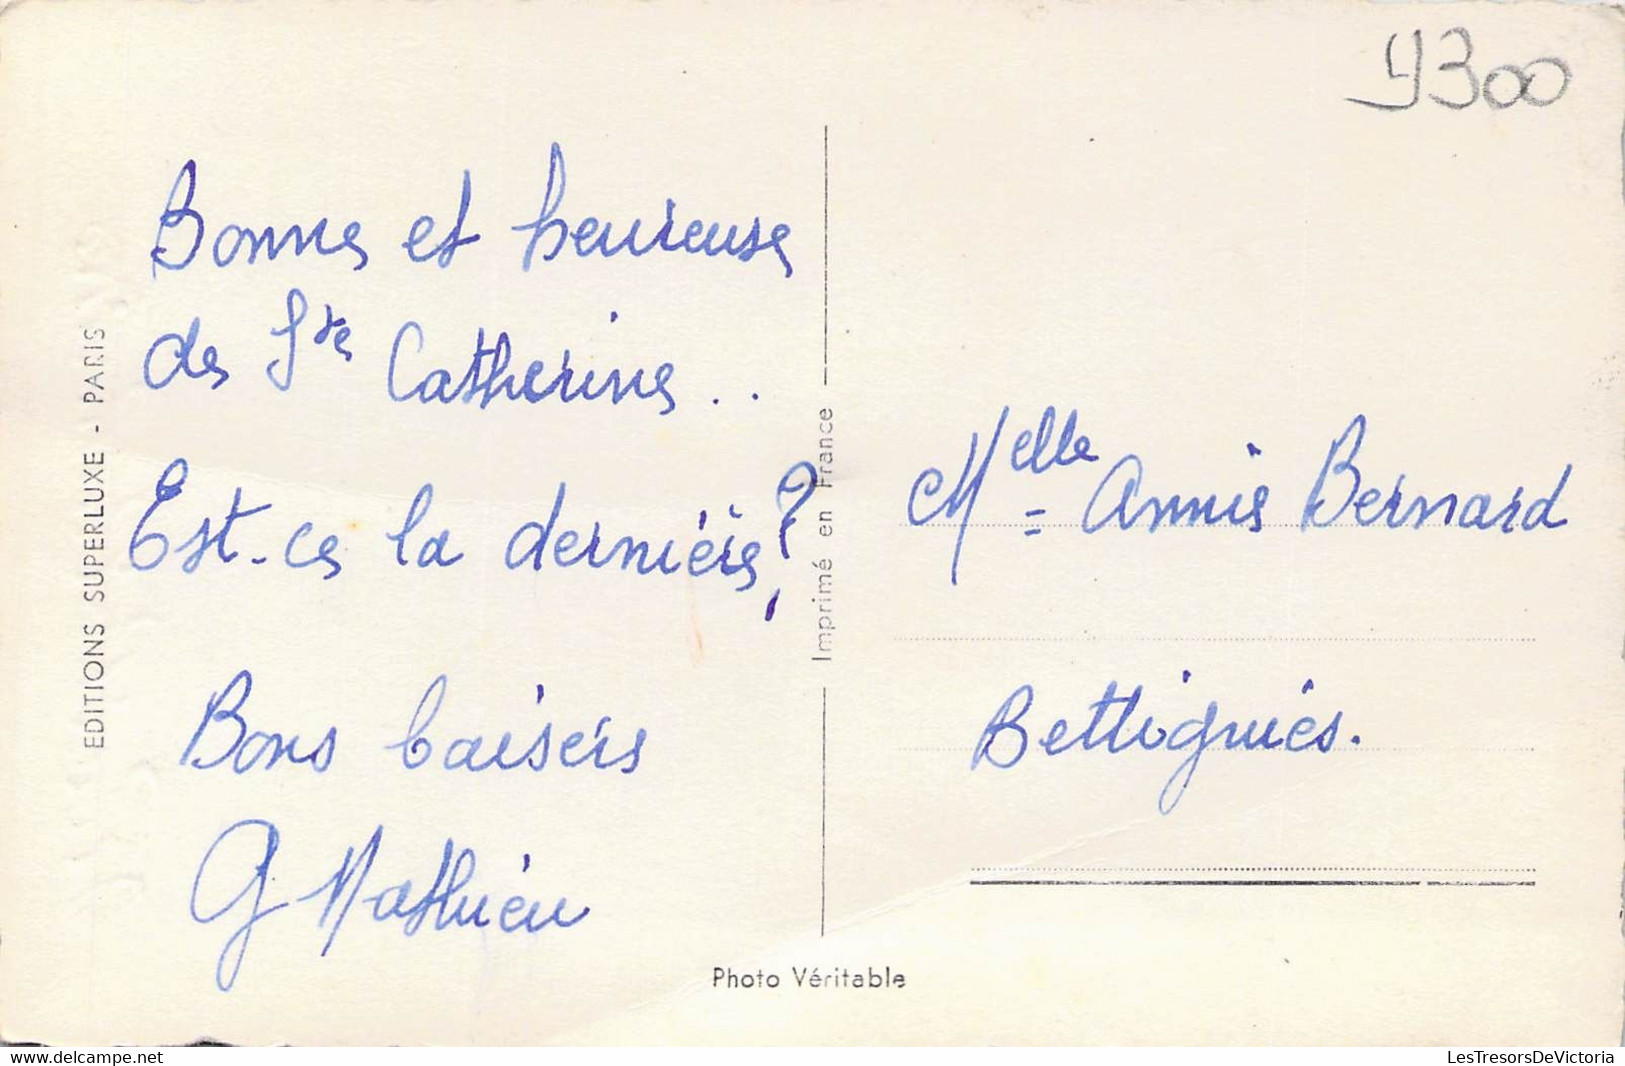 9300
Bonne et heureuse
de Ste Catherine..
Est-ce la dernière?
Bons baisers
G Mathieu
EDITIONS SUPERLUXE - PARIS
Imprimé en France
Melle Annie Bernard
Bettignies.
Photo Véritable
delcampe.net
LesTresorsDeVictoria